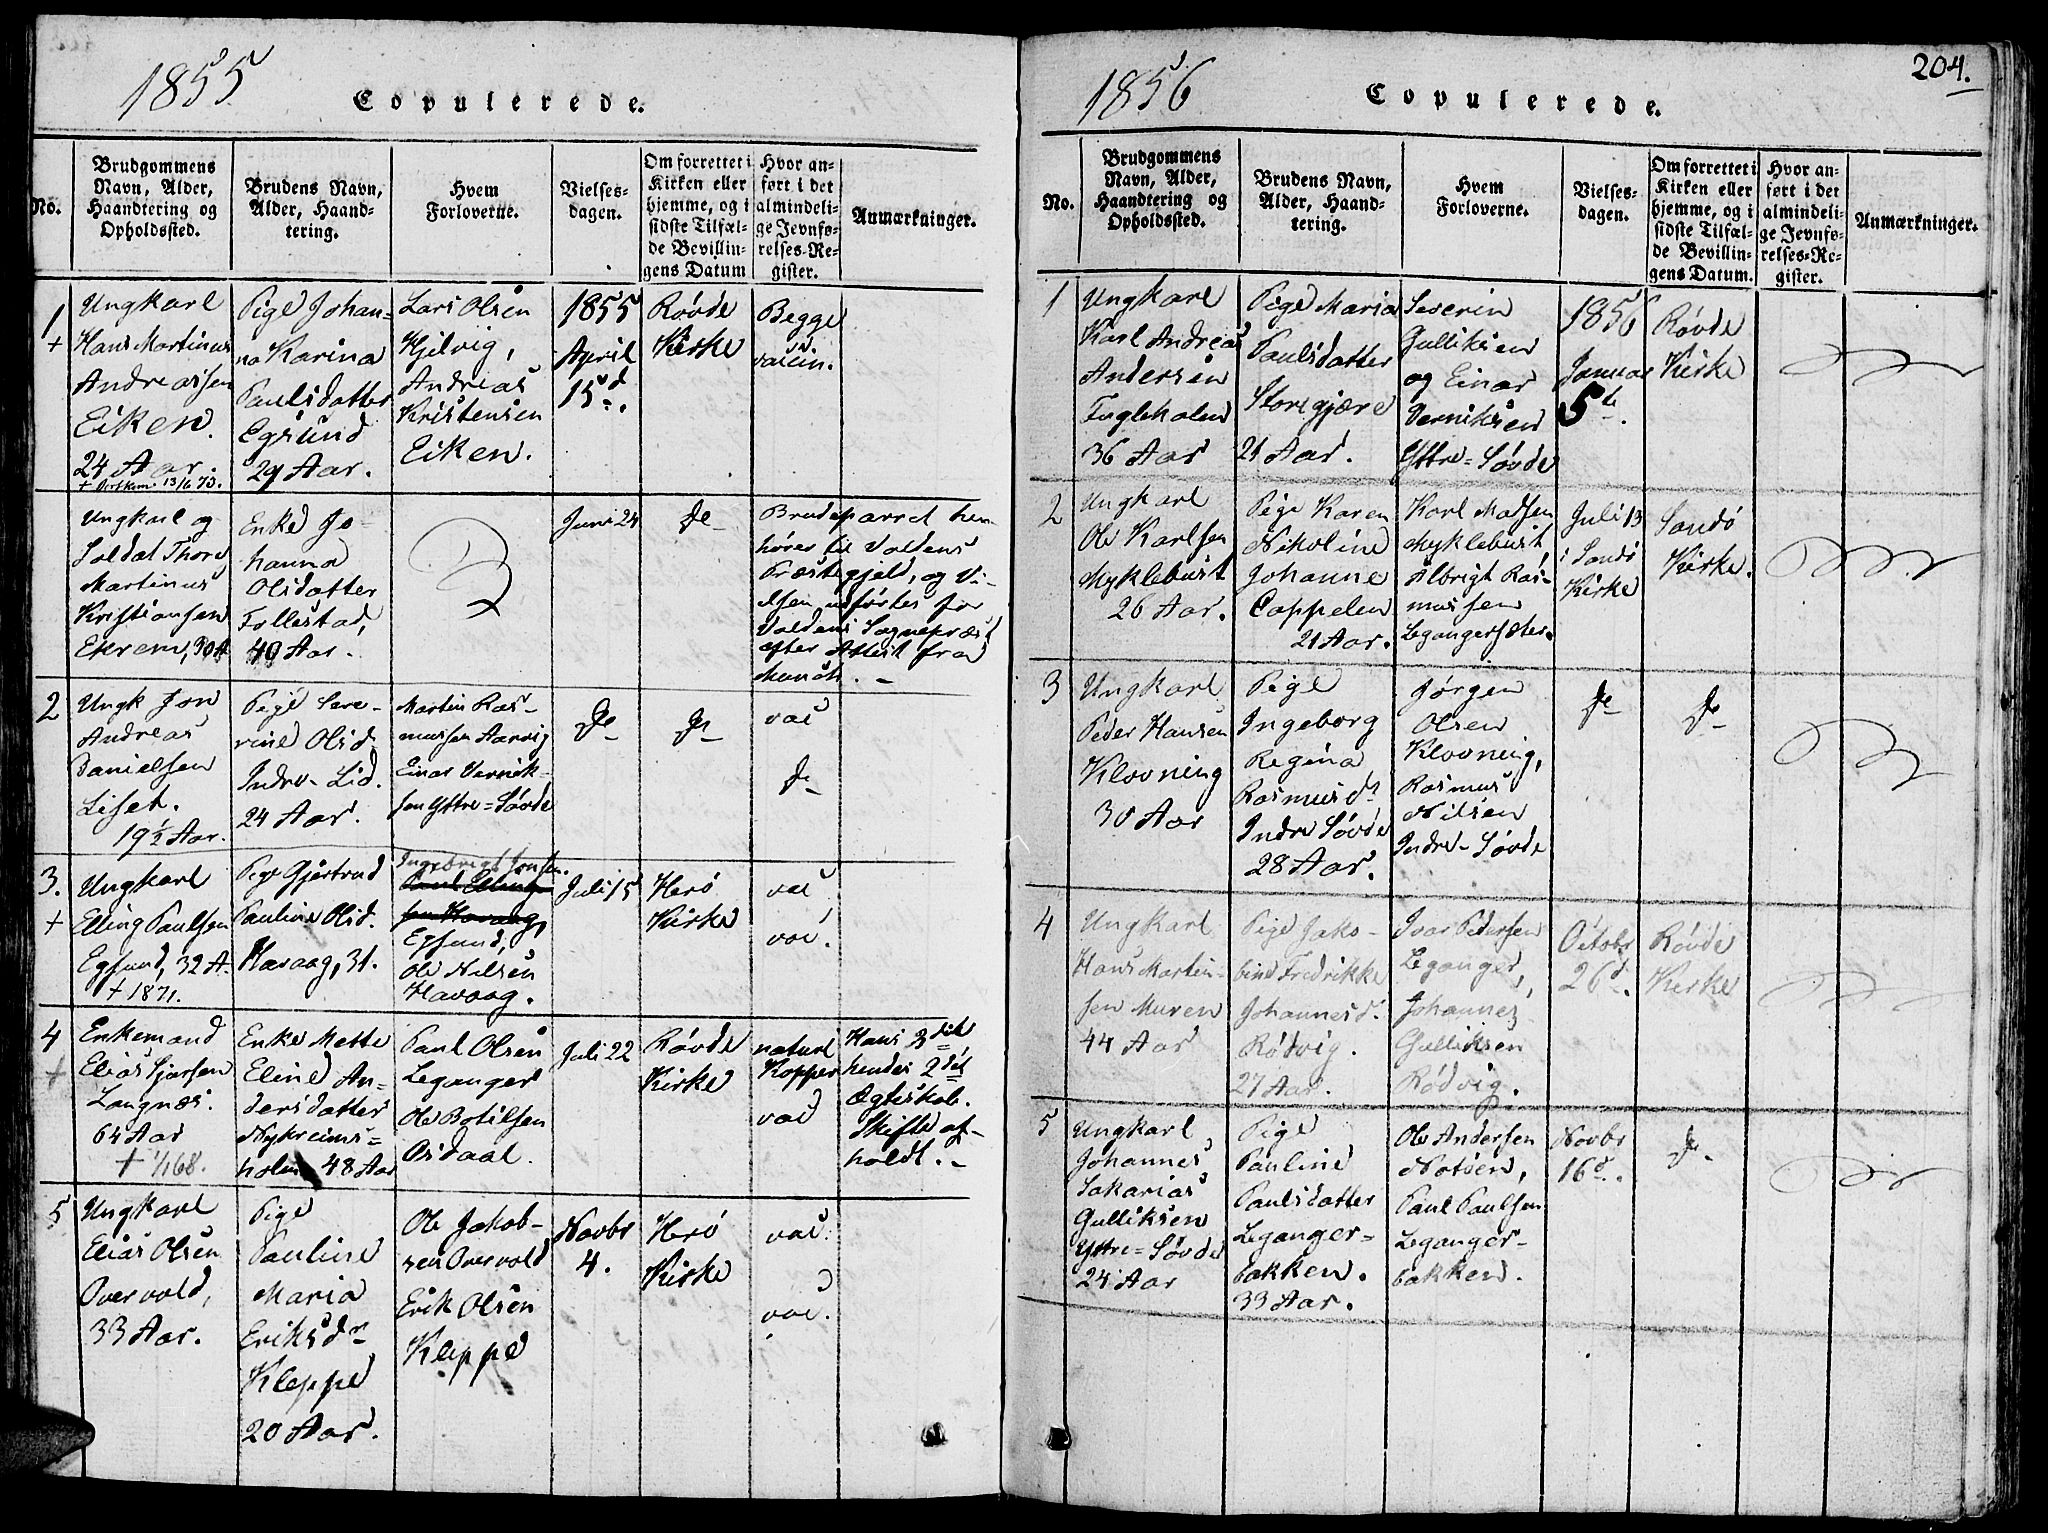 1855
Copulerede.
No.
Brudgommens
Navn, Alder,
Haandtering og
Opholdssted.
Brudens Navn,
Alder, Haand-
tering.
Hvem
Forloverne.
Vielses-
dagen.
Om forrettet i
Kirken eller
hjemme, og i
sidste Tilfæl-
de Bevillin-
gens Datum
Hvor an-
ført i det
almindeli-
ge Jevnfø-
relses-Re-
gister.
Anmærkninger.
1
+
Ungkarl
Hans Martinus
Andreassen
Eiken.
24 Aar.
+ 13/6 73.
Pige Johan-
na Karina
Paulsdatter
Egsund
29 Aar.
Lars Olsen
Hjelvig,
Andreas
Kristensen
Eiken.
1855
April
15d.
Røvde
Kirke
Begge
vaccin.
Ungkarl og
Soldat Thore
Martinus
Kristiansen
Ekrem, 30 A
Enke Jo-
hanna
Olsdatter
Follestad,
40 Aar.
Juni 24
do
Brudeparret hen-
hører til Voldens
Præstegjeld, og Vi-
elsen udførtes for
Voldens Sognepræst
efter Attest fra
Munch. -
2
Ungk Jon
Andreas
Danielsen
Liset.
19½ Aar.
Pige Seve-
rine Olsd.
Indre-Lid.
24 Aar.
Martin Ras-
mussen Aarvig
Einar Vernik-
sen Yttre=Søvde
do
do
vac
do
3.
+
Ungkarl
Elling Paulsen
Egsund, 32 A.
+ 1871.
Pige Gjertrud
Pauline Olsd.
Havaag, 31.
Ingebrigt Jonsen.
Paul Elling-
sen Havaag,
Egsund,
Ole Nilsen
Havaag.
Juli 15
Herø
Kirke
vac
vac.
4
+
Enkemand
Elias Sjursen
Langnæs.
64 Aar
+ 1/1 68.
Enke Mette
Eline An-
dersdatter
Nykreims=
holm 48 Aar
Paul Olsen
Leganger
Ole Botilsen
Osdaal.
Juli 22
Røvde
Kirke
naturl
Kopper
vac
Hans 3die
hendes 2det
Ægteskab.
Skifte af-
holdt. -
5
Ungkarl
Elias Olsen
Overvold,
33 Aar.
Pige
Pauline
Maria
Eriksdr
Kleppe
20 Aar.
Ole Jakob-
sen Overvold
Erik Olsen
Kleppe
Novbr
4.
Herø
Kirke
vac.
vac.
204.
1856
Copulerede.
No.
Brudgommens
Navn, Alder,
Haandtering og
Opholdssted.
Brudens Navn,
Alder, Haand-
tering.
Hvem
Forloverne.
Vielses-
dagen.
Om forrettet i
Kirken eller
hjemme, og i
sidste Tilfæl-
de Bevillin-
gens Datum.
Hvor an-
ført i det
almindeli-
ge Jevnfø-
relses-Re-
gister.
Anmærkninger.
1
Ungkarl
Karl Andreas
Andersen
Fugleholen
36 Aar
Pige Maria
Paulsdatter
Storegjære
21 Aar.
Severin
Gulliksen
og Einar
Verniksen
Yttre=Søvde
1856
Januar
5te.
Røvde
Kirke
2
Ungkarl
Ole Karlsen
Myklebust
26 Aar.
Pige Karen
Nikoline
Johanne
Cappelen
21 Aar.
Karl Madsen
Myklebust,
Albrigt Ras-
mussen
Legangersæter.
Juli 13
i Sandø
Kirke
Sandø
Kirke.
3
Ungkarl
Peder Hansen
Klovning
30 Aar
Pige
Ingeborg
Regina
Rasmusdr
Indre Søvde
28 Aar.
Jørgen
Olsen
Klovning,
Rasmus
Nilsen
Indre-Søvde
do
do
4
Ungkarl
Hans Martin-
sen Muren
44 Aar
Pige Jako-
bine Fredrikke
Johannesd.
Rødvig.
27 Aar.
Ivar Pedersen
Leganger,
Johannes
Gulliksen
Rødvig.
Octobr
26d.
Røvde
Kirke
5
Ungkarl
Johannes
Sakarias
Gulliksen
Yttre=Søvde
24 Aar
Pige
Pauline
Paulsdatter
Leganger=
bakken.
33 Aar.
Ole Andersen
Notøen,
Paul Paulsen
Leganger-
bakken.
Novbr
16d..
do.